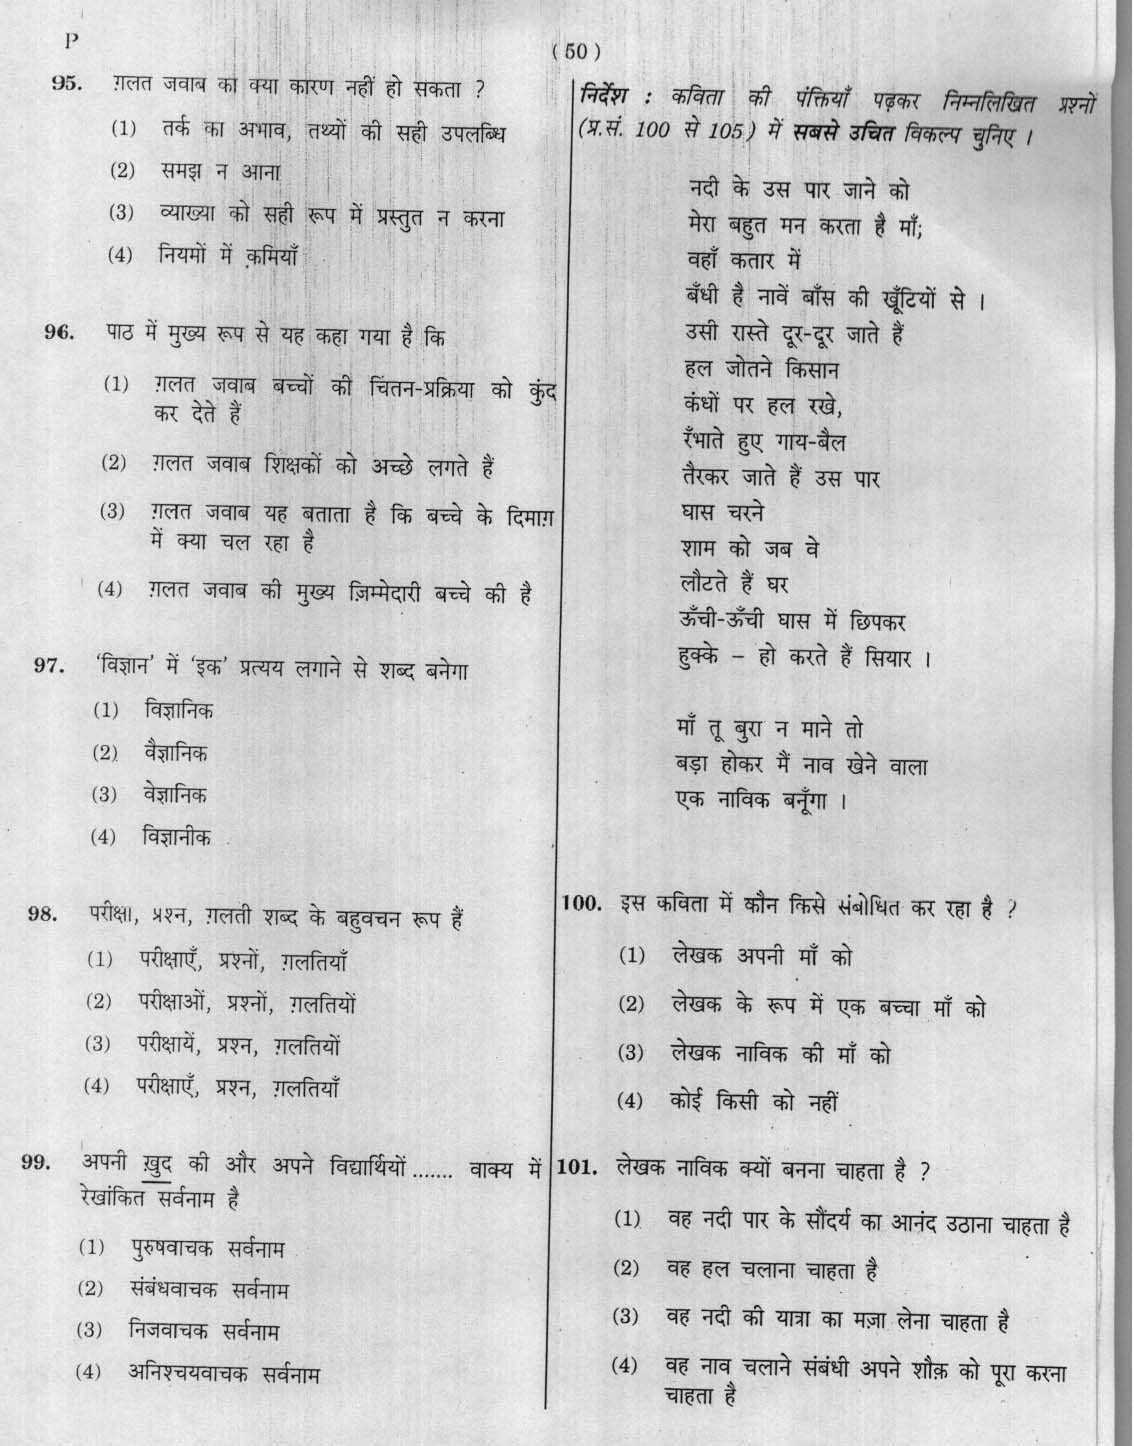 P
( 50 )
95. ग़लत जवाब का क्या कारण नहीं हो सकता ?
(1) तर्क का अभाव, तथ्यों की सही उपलब्धि
(2) समझ न आना
(3) व्याख्या को सही रूप में प्रस्तुत न करना
(4) नियमों में कमियाँ
96. पाठ में मुख्य रूप से यह कहा गया है कि
(1) ग़लत जवाब बच्चों की चिंतन-प्रक्रिया को कुंद
कर देते हैं
(2) ग़लत जवाब शिक्षकों को अच्छे लगते हैं
(3) ग़लत जवाब यह बताता है कि बच्चे के दिमाग़
में क्या चल रहा है
(4) ग़लत जवाब की मुख्य ज़िम्मेदारी बच्चे की है
97. ‘विज्ञान’ में ‘इक’ प्रत्यय लगाने से शब्द बनेगा
(1) विज्ञानिक
(2) वैज्ञानिक
(3) वेज्ञानिक
(4) विज्ञानीक
98. परीक्षा, प्रश्न, ग़लती शब्द के बहुवचन रूप हैं
(1) परीक्षाएँ, प्रश्नों, ग़लतियाँ
(2) परीक्षाओं, प्रश्नों, ग़लतियों
(3) परीक्षायें, प्रश्न, ग़लतियों
(4) परीक्षाएँ, प्रश्न, ग़लतियाँ
99. अपनी ख़ुद की और अपने विद्यार्थियों ....... वाक्य में
रेखांकित सर्वनाम है
(1) पुरुषवाचक सर्वनाम
(2) संबंधवाचक सर्वनाम
(3) निजवाचक सर्वनाम
(4) अनिश्चयवाचक सर्वनाम
निर्देश : कविता की पंक्तियाँ पढ़कर निम्नलिखित प्रश्नों
(प्र.सं. 100 से 105) में सबसे उचित विकल्प चुनिए ।
नदी के उस पार जाने को
मेरा बहुत मन करता है माँ;
वहाँ कतार में
बँधी है नावें बाँस की खूँटियों से ।
उसी रास्ते दूर-दूर जाते हैं
हल जोतने किसान
कंधों पर हल रखे,
रँभाते हुए गाय-बैल
तैरकर जाते हैं उस पार
घास चरने
शाम को जब वे
लौटते हैं घर
ऊँची-ऊँची घास में छिपकर
हुक्के – हो करते हैं सियार ।
माँ तू बुरा न माने तो
बड़ा होकर मैं नाव खेने वाला
एक नाविक बनूँगा ।
100. इस कविता में कौन किसे संबोधित कर रहा है ?
(1) लेखक अपनी माँ को
(2) लेखक के रूप में एक बच्चा माँ को
(3) लेखक नाविक की माँ को
(4) कोई किसी को नहीं
101. लेखक नाविक क्यों बनना चाहता है ?
(1) वह नदी पार के सौंदर्य का आनंद उठाना चाहता है
(2) वह हल चलाना चाहता है
(3) वह नदी की यात्रा का मज़ा लेना चाहता है
(4) वह नाव चलाने संबंधी अपने शौक़ को पूरा करना
चाहता है